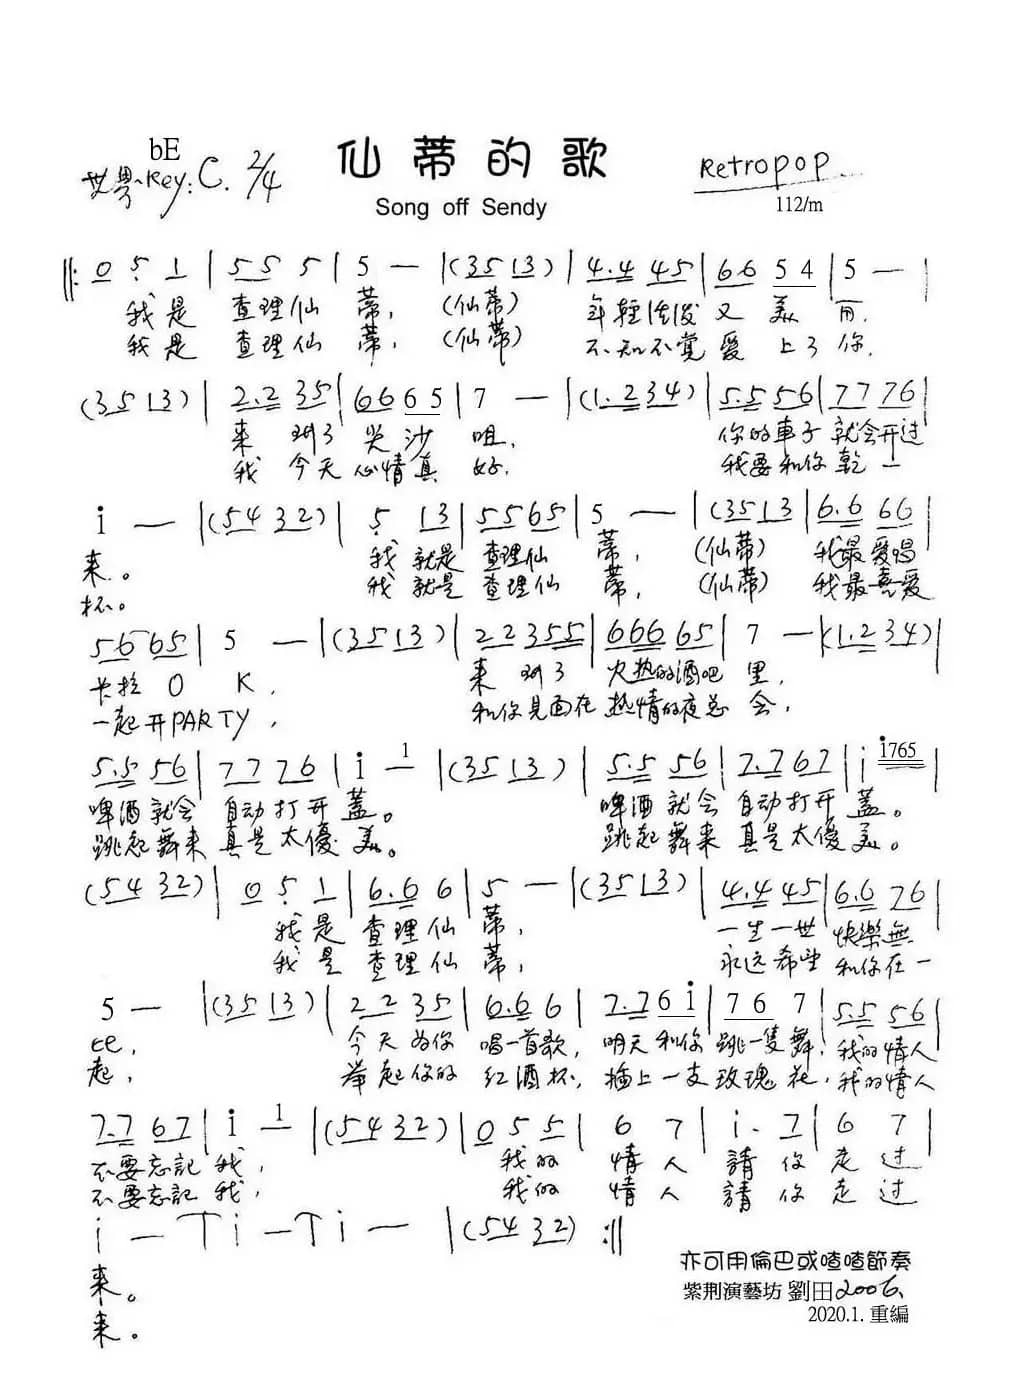 bE
Key: C. 2/4
仙蒂的歌
Song off Sendy
Retropop
112/m
‖: 0 5̣ 1 | 5 5 5 | 5 — | (3 5 1 3) | 4.4 4 5 | 6 6 5 4 | 5 — |
我是 查理仙 蒂, (仙蒂) 年輕活潑 又 美 丽.
我是 查理仙 蒂, (仙蒂) 不知不覚 爱 上了 你.
(3 5 1 3) | 2.2 3 5 | 6 6 6 5 | 7 — | (1.2 3 4) | 5.5 5 6 | 7 7 7 6 |
来 到了 尖沙 咀, 你的車子 就会开过
我 今天 心情真 好. 我要和你 乾一
i — | (5 4 3 2) | 5̣ 1 3 | 5 5 6 5 | 5 — | (3 5 1 3 | 6.6 6 6 |
来。 我 就是 查理仙 蒂, (仙蒂) 我最爱唱
杯。 我 就是 查理仙 蒂, (仙蒂) 我最喜爱
5 6 6 5 | 5 — | (3 5 1 3) | 2 2 3 5 5 | 6 6 6 6 5 | 7 — | (1.2 3 4) |
卡拉 O K, 来 到了 火热的酒吧 里,
一起开PARTY, 和你见面在 热情的夜总 会,
5.5 5 6 | 7 7 7 6 | i 1 | (3 5 1 3) | 5.5 5 6 | 7.7 6 7 | i i765 |
啤酒就会 自动打开 蓋。 啤酒就会 自动打开 蓋。
跳起舞来 真是太優 美。 跳起舞来 真是太優 美。
(5 4 3 2) | 0 5̣ 1 | 6.6 6 | 5 — | (3 5 1 3) | 4.4 4 5 | 6.6 7 6 |
我是 查理仙 蒂, 一生一世 快樂無
我是 查理仙 蒂, 永远希望 和你在一
5 — | (3 5 1 3) | 2 2 3 5 | 6.6 6 | 7.7 6 i | 7 6 7 | 5.5 5 6 |
比, 今天为你 唱一首歌, 明天和你 跳一隻舞, 我的情人
起, 举起你的 红酒杯, 插上一支 玫瑰花, 我的情人
7.7 6 7 | i 1 | (5 4 3 2) | 0 5 5 | 6 7 | i. 7 | 6 7 |
不要忘記 我, 我的 情人 請你 走过
不要忘記 我, 我的 情人 請你 走过
i — | i — | i — | (5 4 3 2) :‖
来。
来。
亦可用倫巴或喳喳節奏
紫荆演藝坊 劉田2006.
2020.1. 重編